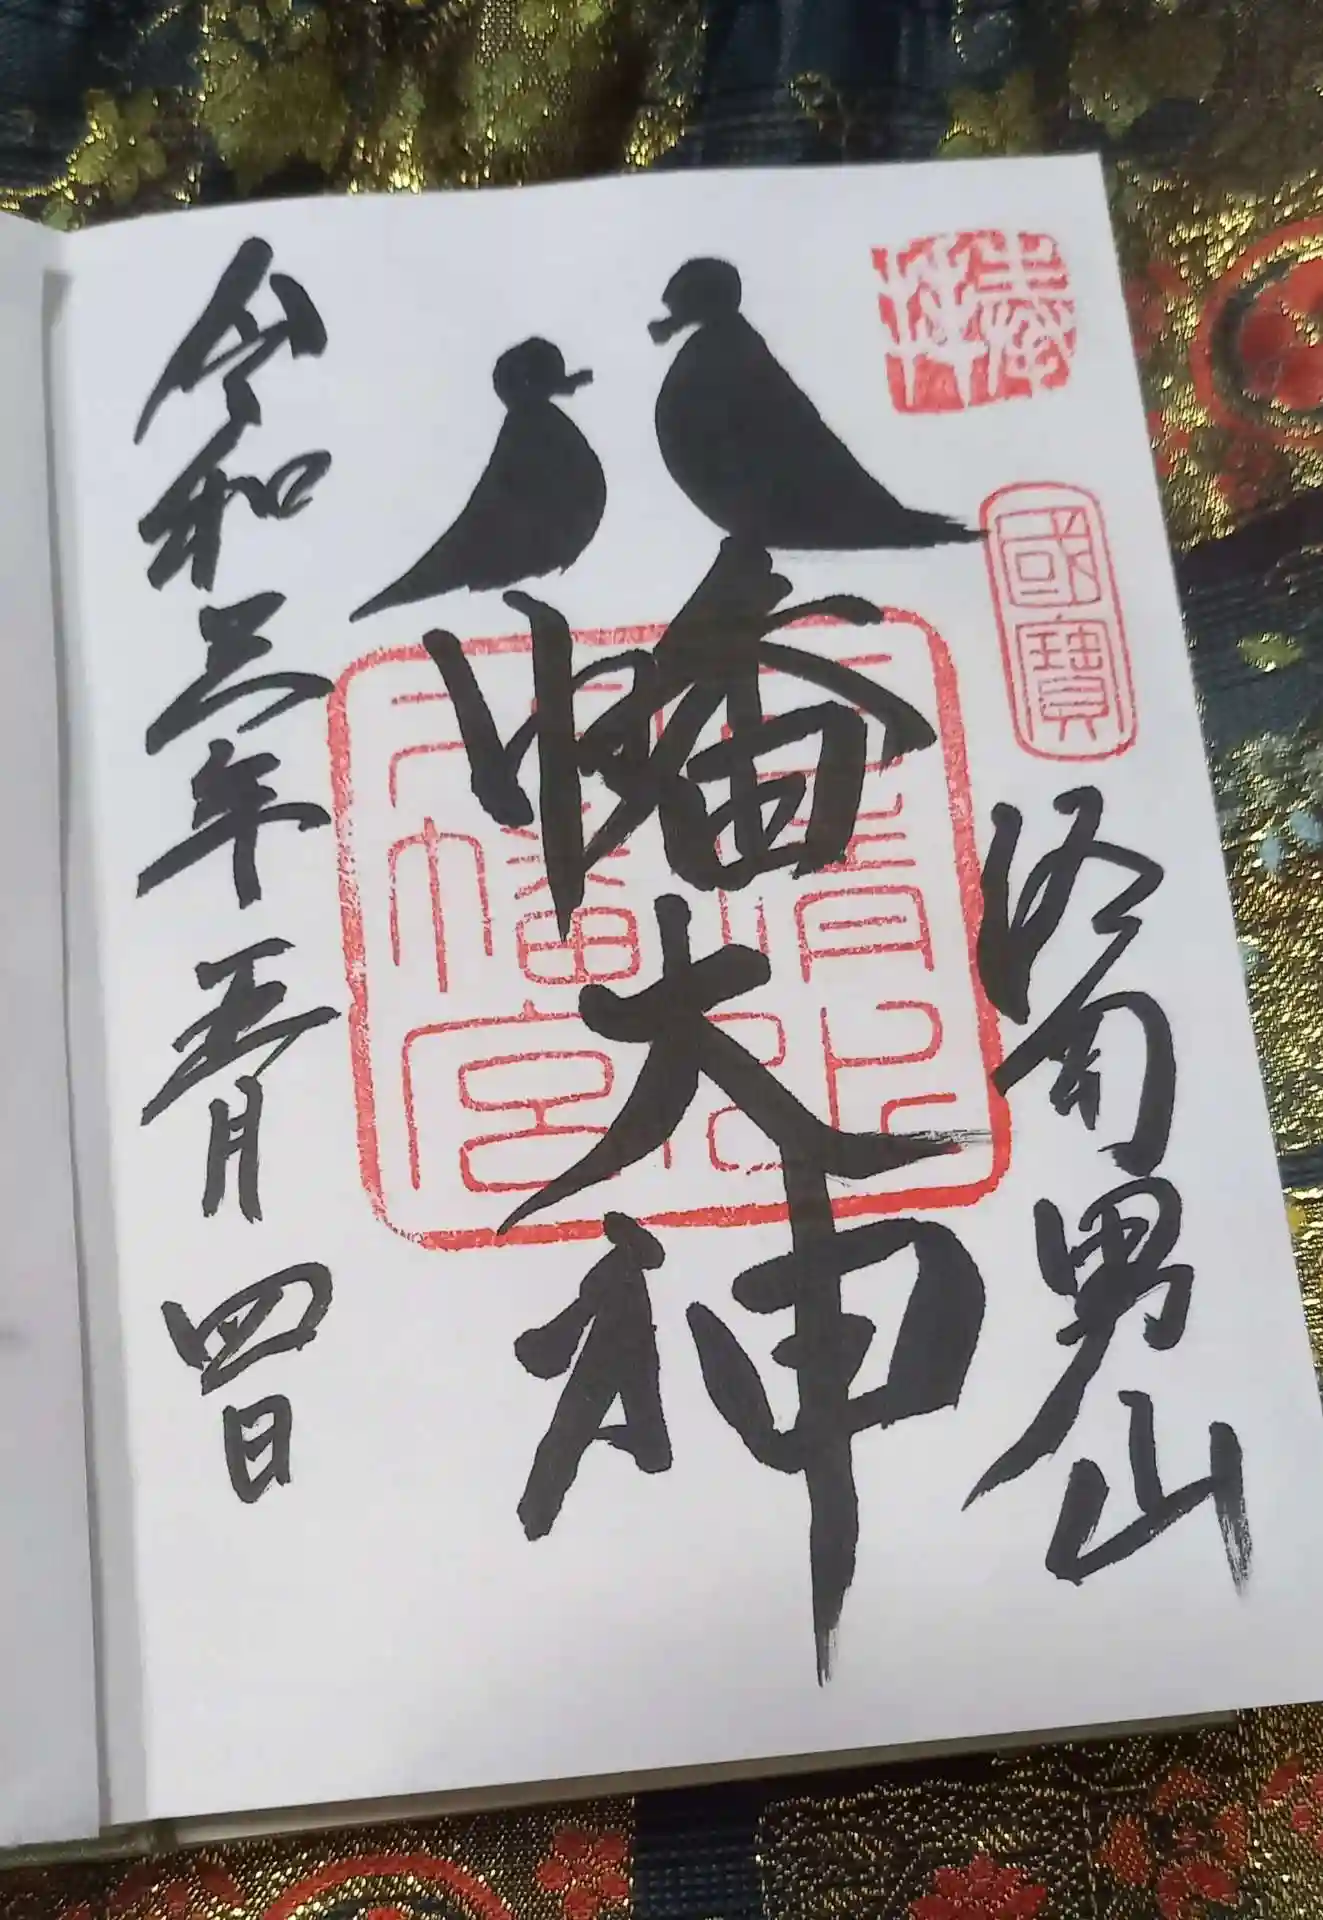 國寶
洛南男山
八幡大神
石清水
八幡宮
令和三年五月四日